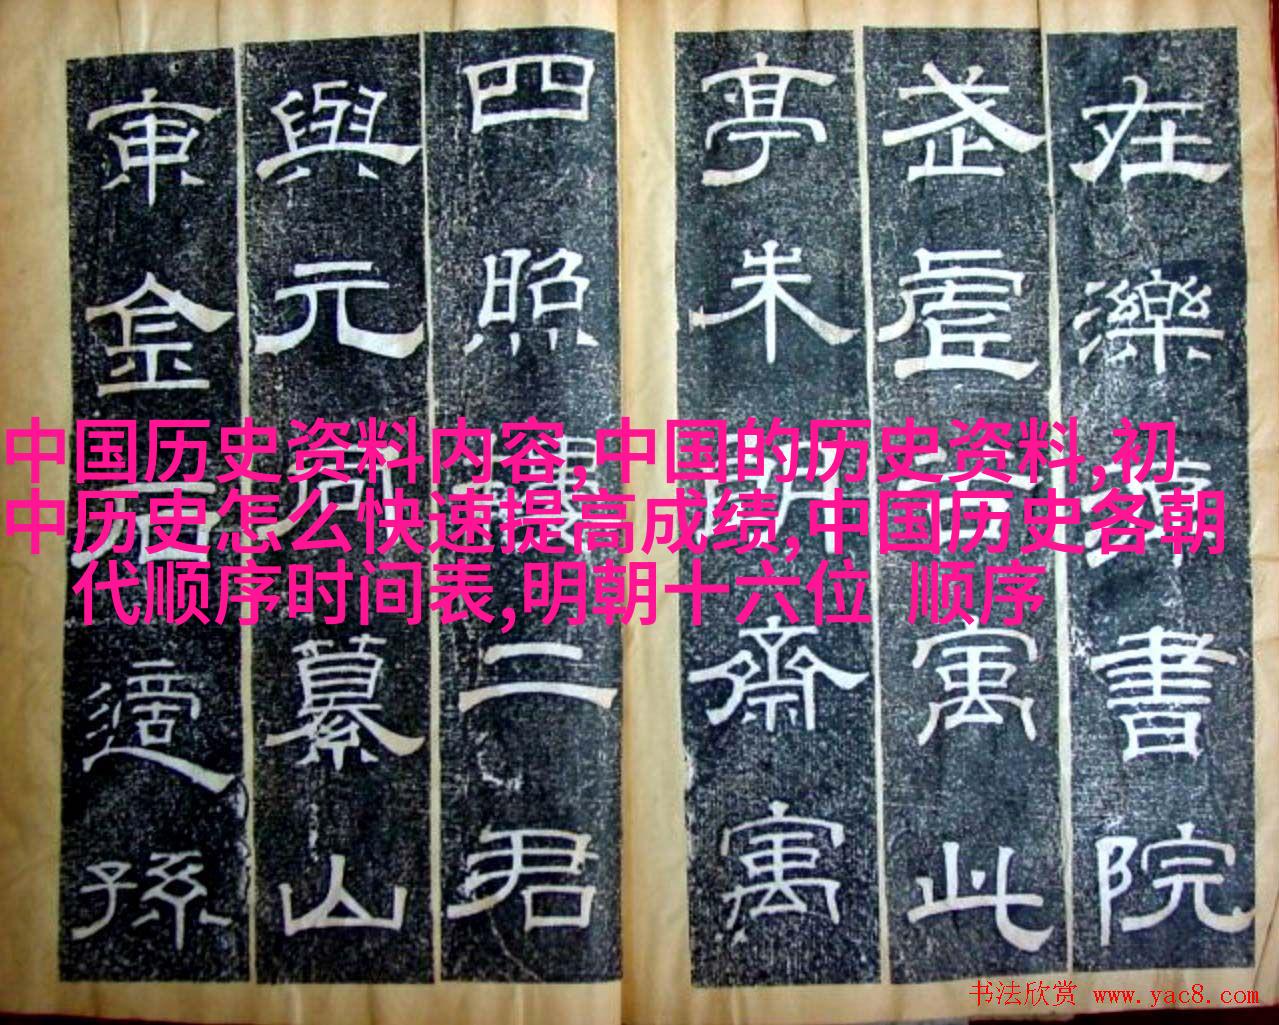 中国历史资料内容,中国的历史资料,初
中历史怎么快速提高成绩,中国历史各朝
代顺序时间表,明朝十六位 顺序
在濼書院
武虛寓此
亭朱朗齋寓
四照樓二君
與元同纂山
東金石適孫
书法欣赏 www.yac8.com